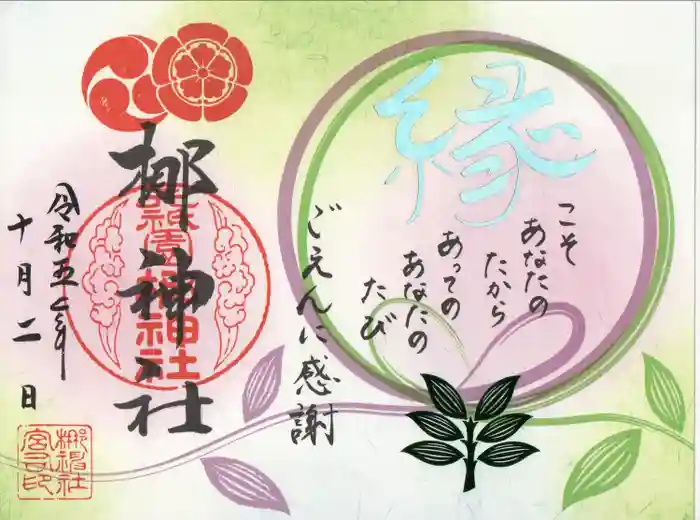 縁
こそ
あなたの
たから
あっての
あなたの
たび
ごえんに感謝
梛神社
祇園梛神社
令和五年
十月二日
梛神社
宮司印